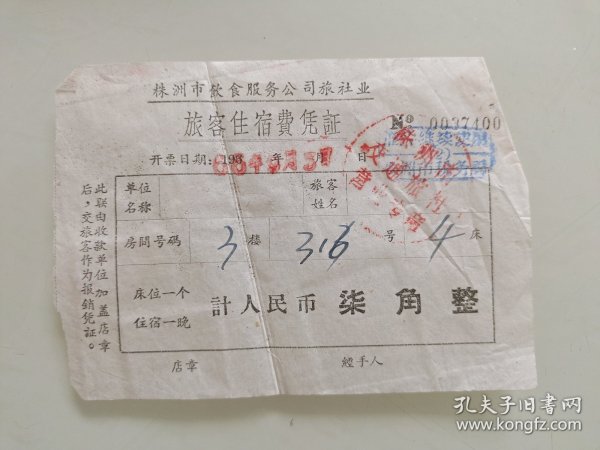 株洲市飲食服务公司旅社业
旅客住宿費凭証
№ 0037400
开票日期:196 年 月 日
单位名称
旅客姓名
房間号碼 3 楼 316 号 4 床
床位一个
住宿一晚
計人民币 柒角整
店章 經手人
此联由收款单位加盖店章
后,交旅客作为报銷凭証。
孔夫子旧书网
www.kongfz.com